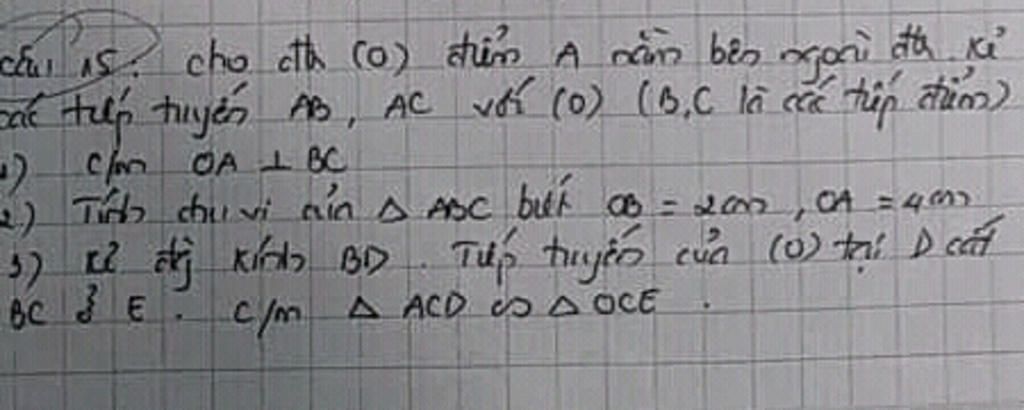 câu 15: cho đth (O) điểm A nằm bên ngoài đth. Kẻ
các tiếp tuyến AB, AC với (O) (B,C là các tiếp điểm)
1) C/m OA ⊥ BC
2.) Tính chu vi của Δ ABC biết OB = 2cm, OA = 4cm
3) Kẻ đg kính BD. Tiếp tuyến của (O) tại D cắt
BC ở E. C/m Δ ACD ∽ Δ OCE.